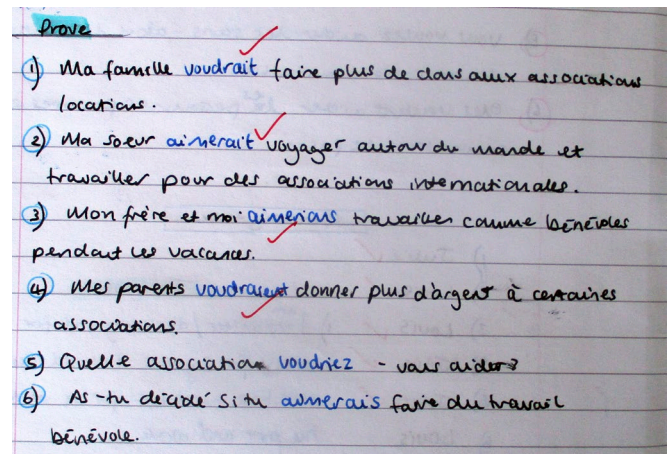 Prove
1) Ma famille voudrait faire plus de dons aux associations
locations.
2) Ma soeur aimerait voyager autour du monde et
travailler pour des associations internationales.
3) Mon frère et moi aimerions travailler comme bénévoles
pendant les vacances.
4) Mes parents voudraient donner plus d'argent à certaines
associations.
5) Quelle association voudriez - vous aider?
6) As-tu décidé si tu aimerais faire du travail
bénévole.